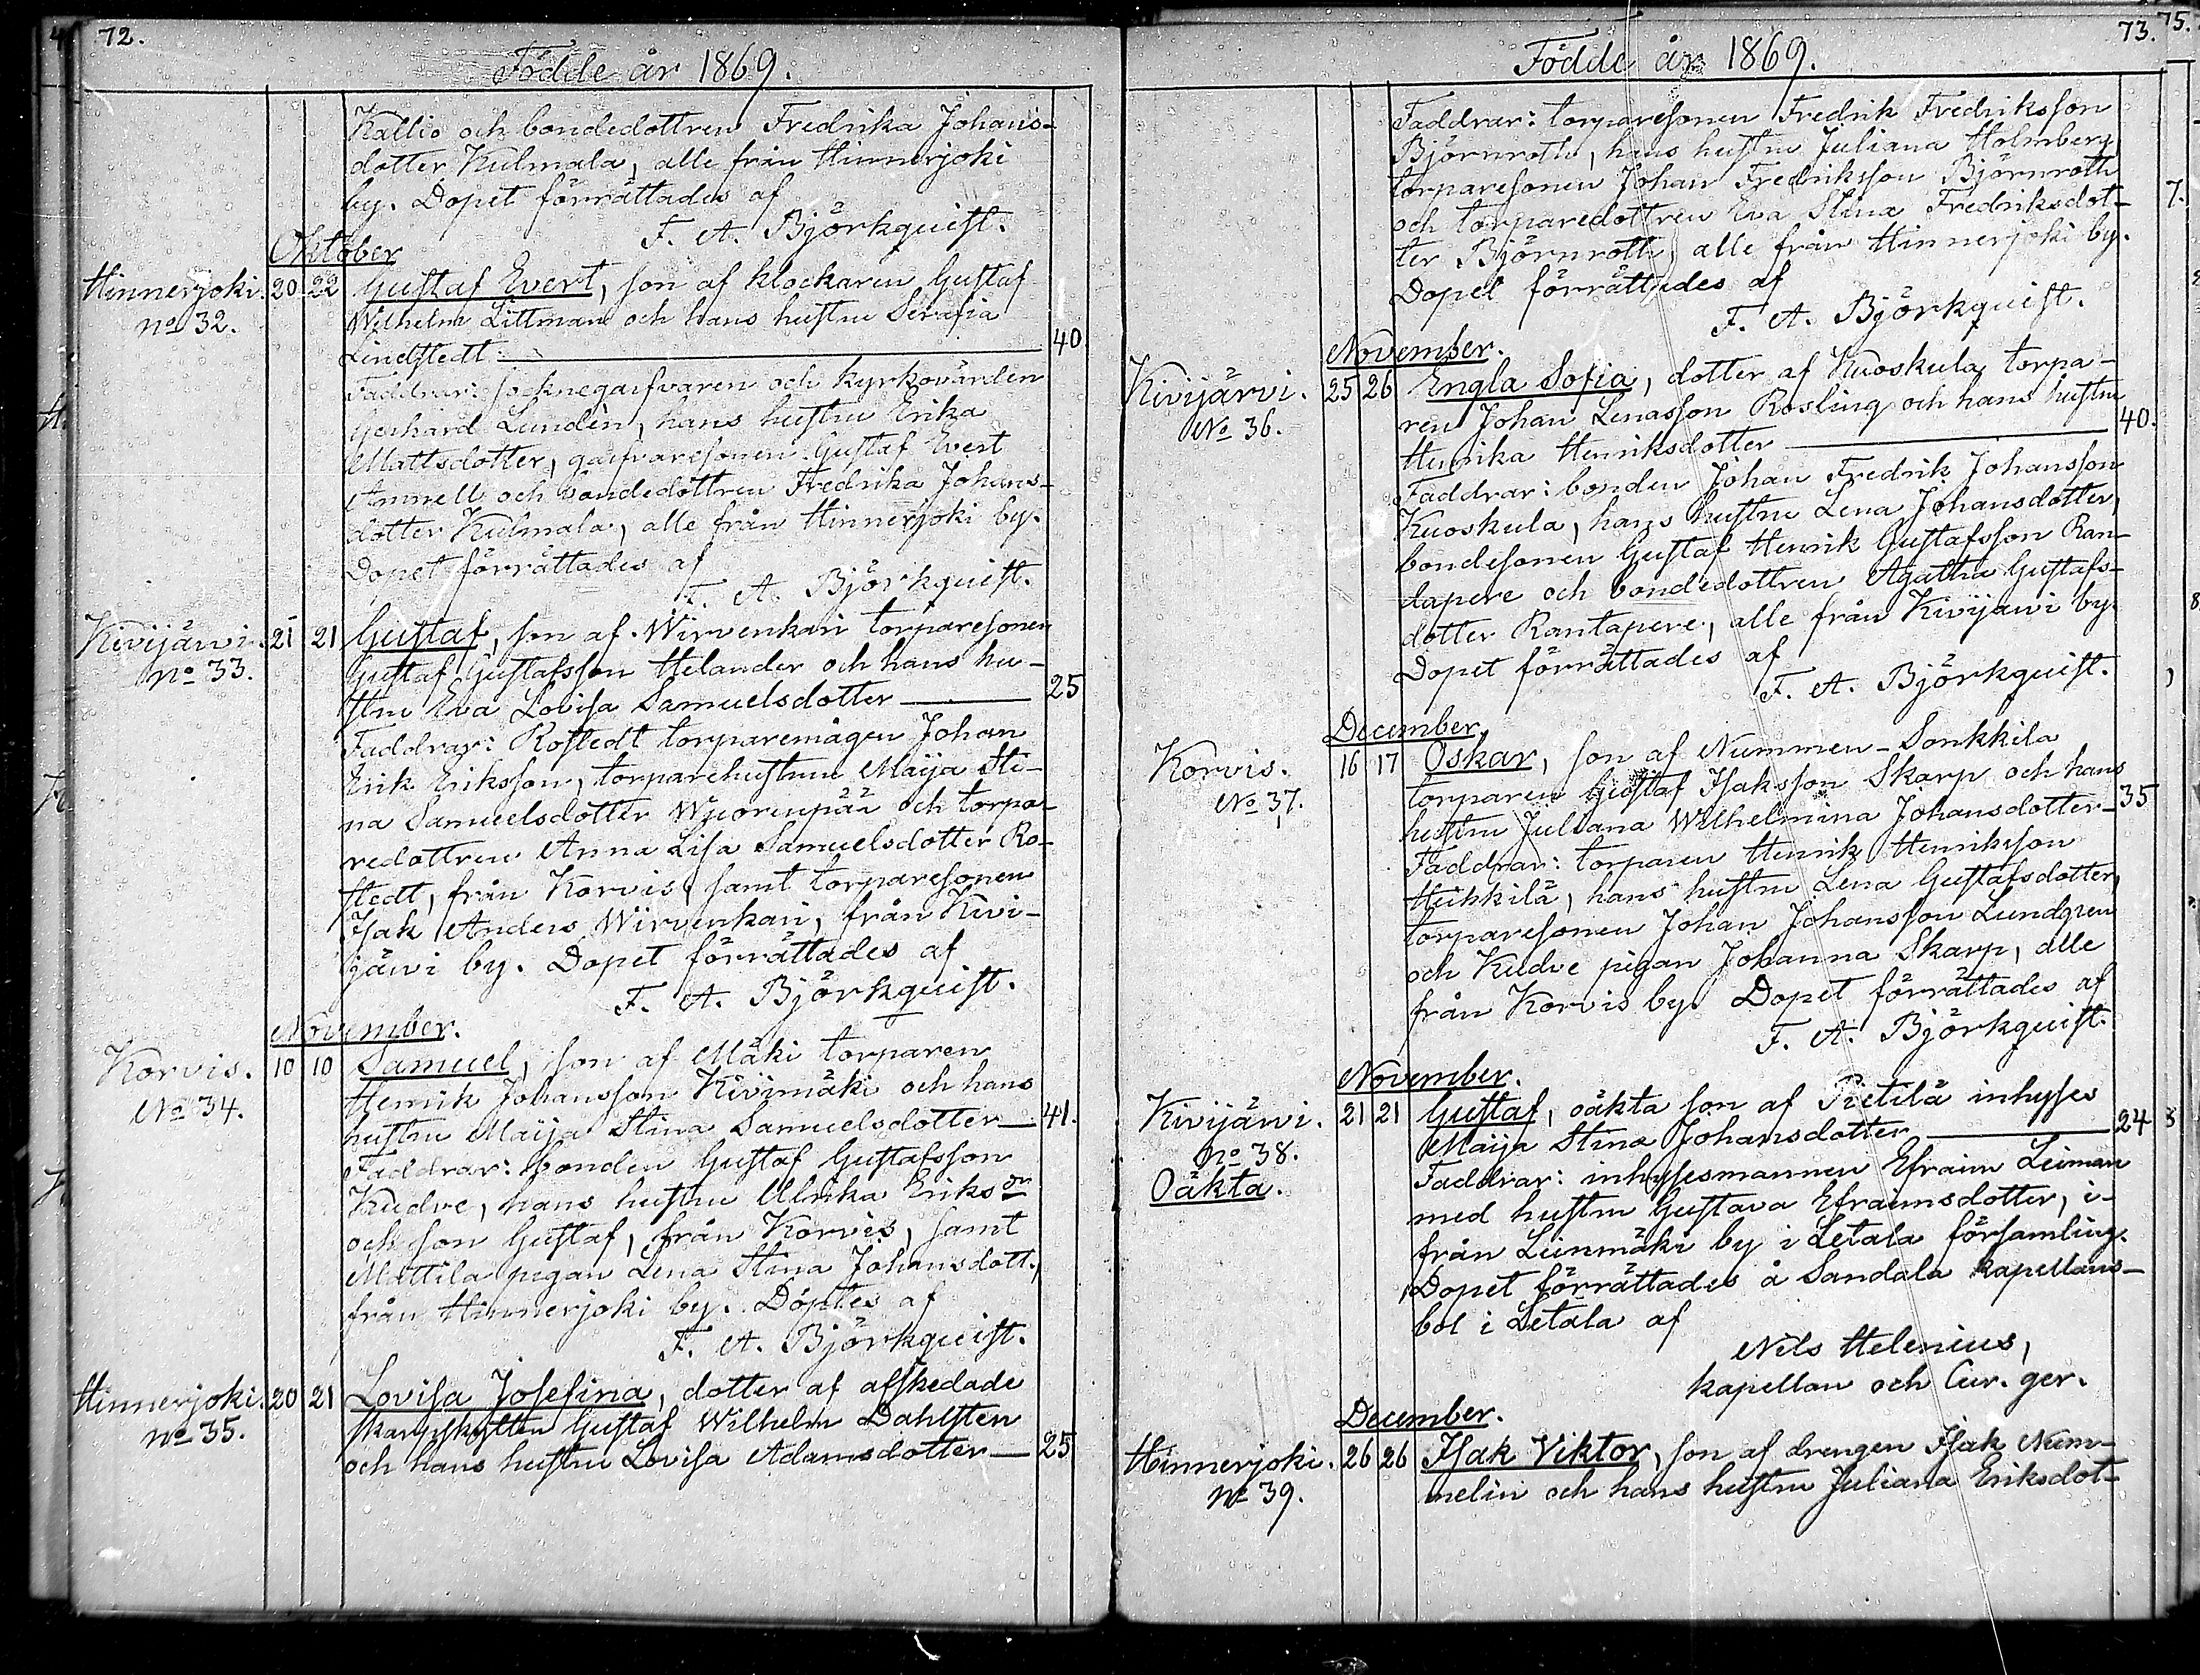 72.
Födde år 1869.
Kallio och bondedottren Fredrika Johans-
dotter Kulmala, alle från Hinnerjoki
by. Dopet förrättades af
F. A. Björkquist.
Oktober
Hinnerjoki. 20 22 Gustaf Evert, son af klockaren Gustaf
No 32. Wilhelm Littman och hans hustru Serafia
Lindstedt 40
Faddrar: socknegarfvaren och kyrkovärden
Gerhard Lundèn, hans hustru Erika
Mattsdotter, garfvaresonen Gustaf Evert
Amnell och bondedottren Fredrika Johans-
dotter Kulmala, alle från Hinnerjoki by.
Dopet förrättades af
F. A. Björkquist.
Kivijärvi. 21 21 Gustaf, son af Wirvenkari torparesonen
No 33. Gustaf Gustafsson Helander och hans hu-
stru Eva Lovisa Samuelsdotter 25
Faddrar: Rostedt torparemågen Johan
Erik Eriksson, torparehustrun Maija Sti-
na Samuelsdotter Wuorenpää och torpa-
redottren Anna Lisa Samuelsdotter Ro-
stedt, från Korvis, samt torparesonen
Isak Anders Wirvenkari, från Kivi-
järvi by. Dopet förrättades af
F. A. Björkquist.
November.
Korvis. 10 10 Samuel, son af Mäki torparen
No 34. Henrik Johansson Kivimäki och hans
hustru Maija Stina Samuelsdotter 41.
Faddrar: bonden Gustaf Gustafsson
Kudve, hans hustru Ulrika Eriksdr
och son Gustaf, från Korvis, samt
Mattila pigan Lena Stina Johansdott.,
från Hinnerjoki by. Döptes af
F. A. Björkquist.
Hinnerjoki. 20 21 Lovisa Josefina, dotter af afskedade
No 35. skarpskytten Gustaf Wilhelm Dahlsten
och hans hustru Lovisa Adamsdotter 25
73. 75.
Födde år 1869.
Faddrar: torparesonen Fredrik Fredriksson
Björnroth, hans hustru Juliana Holmberg,
torparesonen Johan Fredriksson Björnroth
och torparedottren Eva Stina Fredriksdot-
ter Björnroth, alle från Hinnerjoki by.
Dopet förrättades af
F. A. Björkquist.
November.
Kivijärvi. 25 26 Engla Sofia, dotter af Kuoskula torpa-
No 36. ren Johan Lenasson Rosling och hans hustru
Henrika Henriksdotter 40.
Faddrar: bonden Johan Fredrik Johansson
Kuoskula, hans hustru Lena Johansdotter,
bondesonen Gustaf Henrik Gustafsson Ran-
tapere och bondedottren Agatha Gustafs-
dotter Rantapere, alle från Kivijärvi by.
Dopet förrättades af
F. A. Björkquist.
December.
Korvis. 16 17 Oskar, son af Nummen-Sonkkila
No 37. torparen Gustaf Isaksson Skarp och hans
hustru Juliana Wilhelmina Johansdotter 35
Faddrar: torparen Henrik Henriksson
Heikkilä, hans hustru Lena Gustafsdotter,
torparesonen Johan Johansson Lundgren
och Kudve pigan Johanna Skarp, alle
från Korvis by. Dopet förrättades af
F. A. Björkquist.
November.
Kivijärvi. 21 21 Gustaf, oäkta son af Pietilä inhyses
No 38. Maija Stina Johansdotter 24
Oäkta. Faddrar: inhysesmannen Efraim Leiman
med hustru Gustava Efraimsdotter, i-
från Leinmäki by i Letala församling.
Dopet förrättades å Sandala kapellans-
bol i Letala af
Nils Helenius,
kapellan och Cur. ger.
December.
Hinnerjoki. 26 26 Isak Viktor, son af drengen Isak Num-
No 39. melin och hans hustru Juliana Eriksdot-